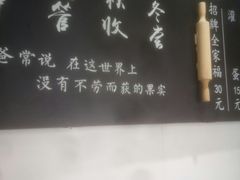 冬藏
秋收
管
爸常说 在这世界上
没有不劳而获的果实
招牌全家福30元
灌
蛋15元